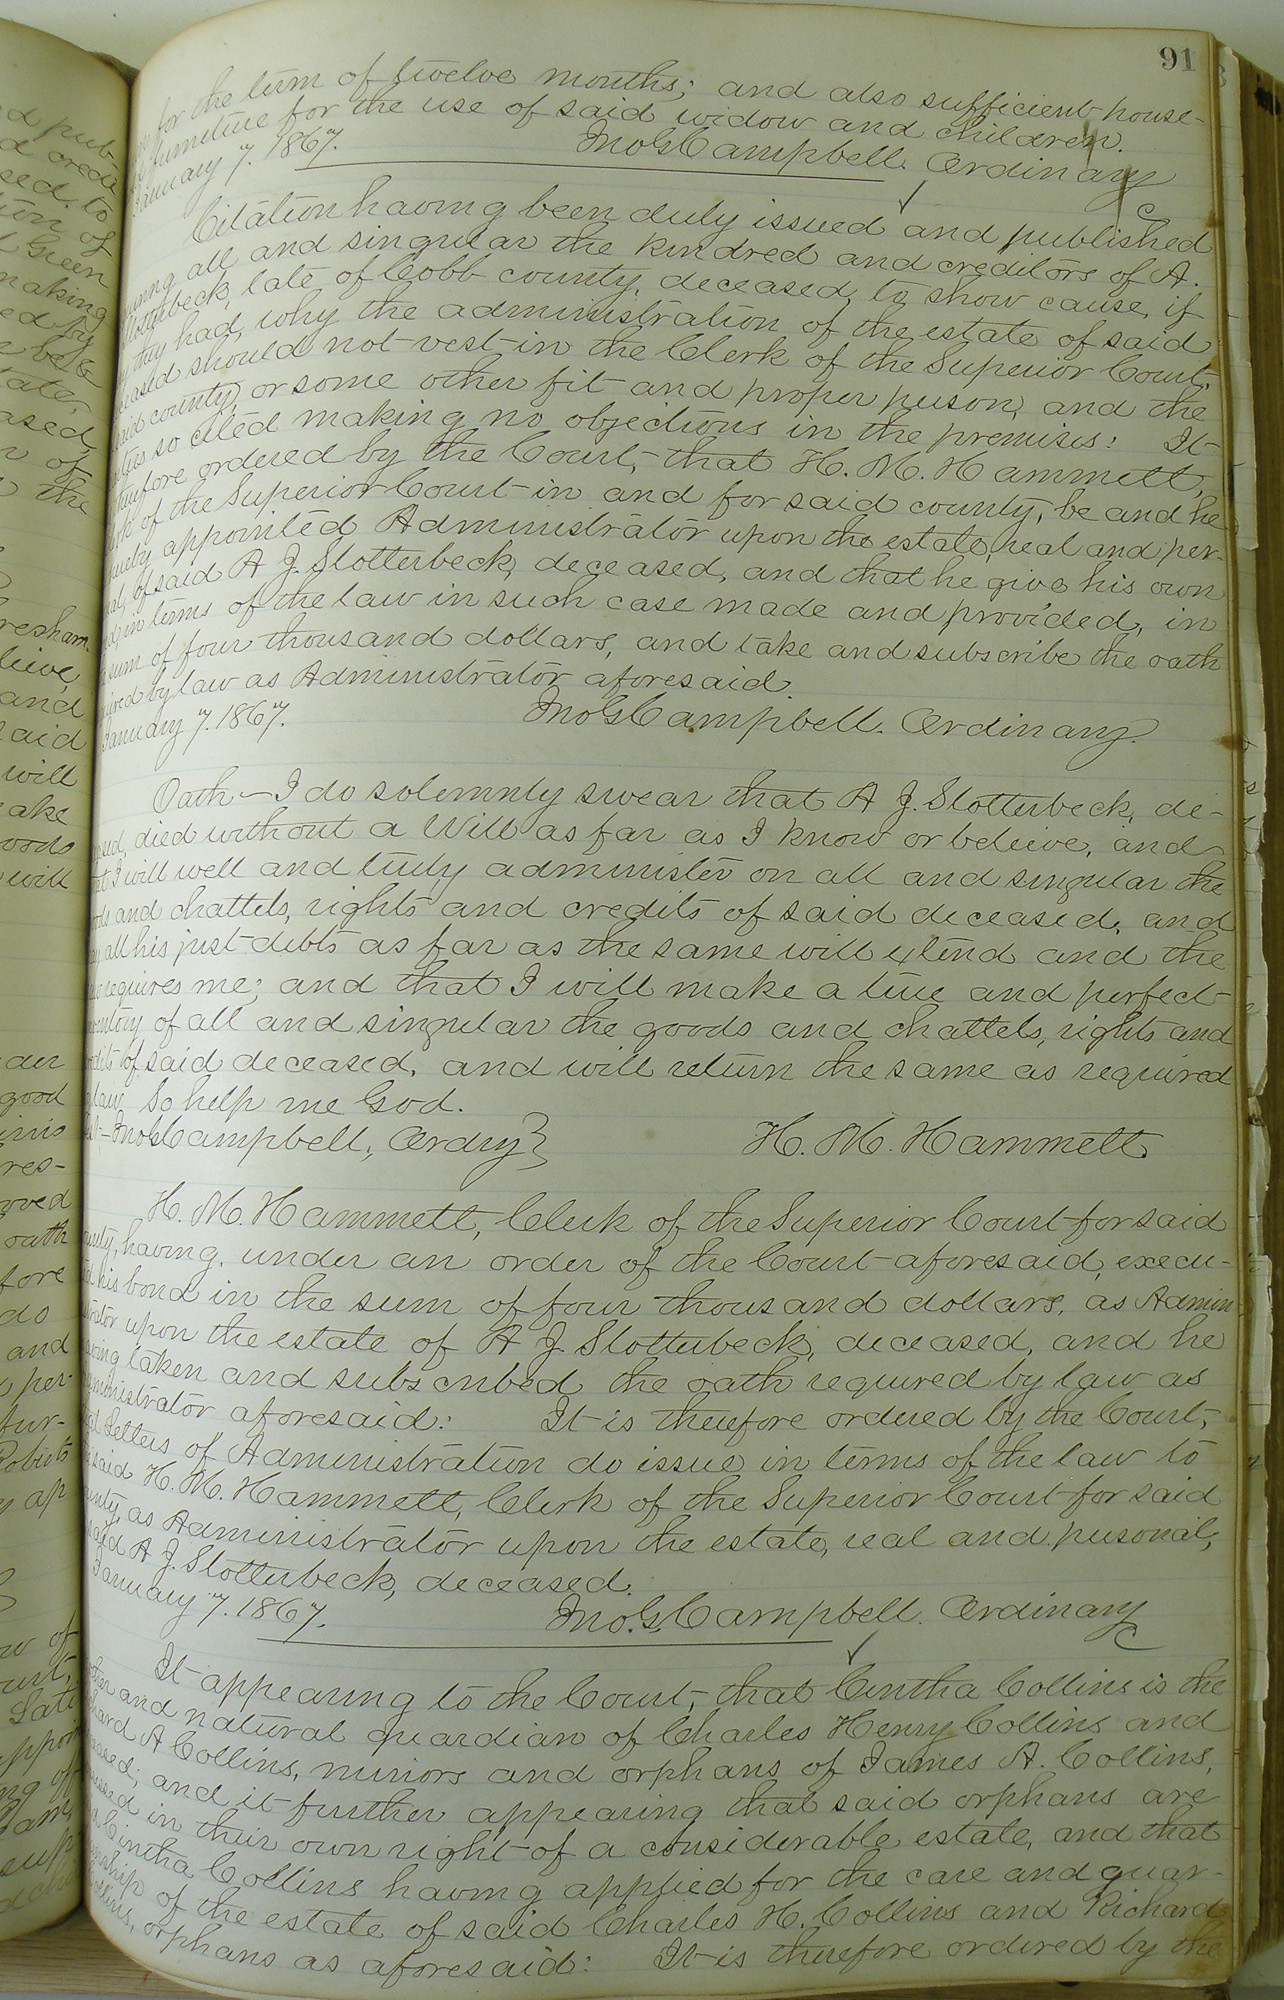 91
for the term of twelve months; and also sufficient house-
furniture for the use of said widow and children.
January 7. 1867. Jno G Campbell. Ordinary
Citation having been duly issued and published
all and singular the kindred and creditors of A.
Slotterbeck, late of Cobb county, deceased, to show cause, if
they had, why the administration of the estate of said
should not vest in the Clerk of the Superior Court,
said county, or some other fit and proper person, and the
so cited making no objections in the premises: It
therefore ordered by the Court, that H. M. Hammett,
of the Superior Court in and for said county, be and he
appointed Administrator upon the estate, real and per-
of said A J. Slotterbeck, deceased, and that he give his own
in terms of the law in such case made and provided, in
sum of four thousand dollars, and take and subscribe the oath
by law as Administrator aforesaid.
January 7. 1867. Jno G Campbell. Ordinary.
Oath - I do solemnly swear that A J. Slotterbeck, de-
died without a Will as far as I know or believe, and
I will well and truly administer on all and singular the
and chattels, rights and credits of said deceased, and
all his just debts as far as the same will extend and the
requires me; and that I will make a true and perfect
of all and singular the goods and chattels, rights and
of said deceased, and will return the same as required
law. So help me God.
Jno G Campbell, Ordry } H. M. Hammett
H. M. Hammett, Clerk of the Superior Court for said
having, under an order of the Court aforesaid, execu-
his bond in the sum of four thousand dollars, as Admin-
upon the estate of A J. Slotterbeck, deceased, and he
taken and subscribed the oath required by law as
aforesaid: It is therefore ordered by the Court,
Letters of Administration do issue in terms of the law to
said H. M. Hammett, Clerk of the Superior Court for said
as Administrator upon the estate, real and personal,
said A J. Slotterbeck, deceased.
January 7. 1867. Jno. G. Campbell. Ordinary
It appearing to the Court, that Cintha Collins is the
and natural guardian of Charles Henry Collins and
A Collins, minors and orphans of James A. Collins,
and it further appearing that said orphans are
in their own right of a considerable estate, and that
Cintha Collins having applied for the care and guar-
of the estate of said Charles H. Collins and Richard
orphans as aforesaid: It is therefore ordered by the